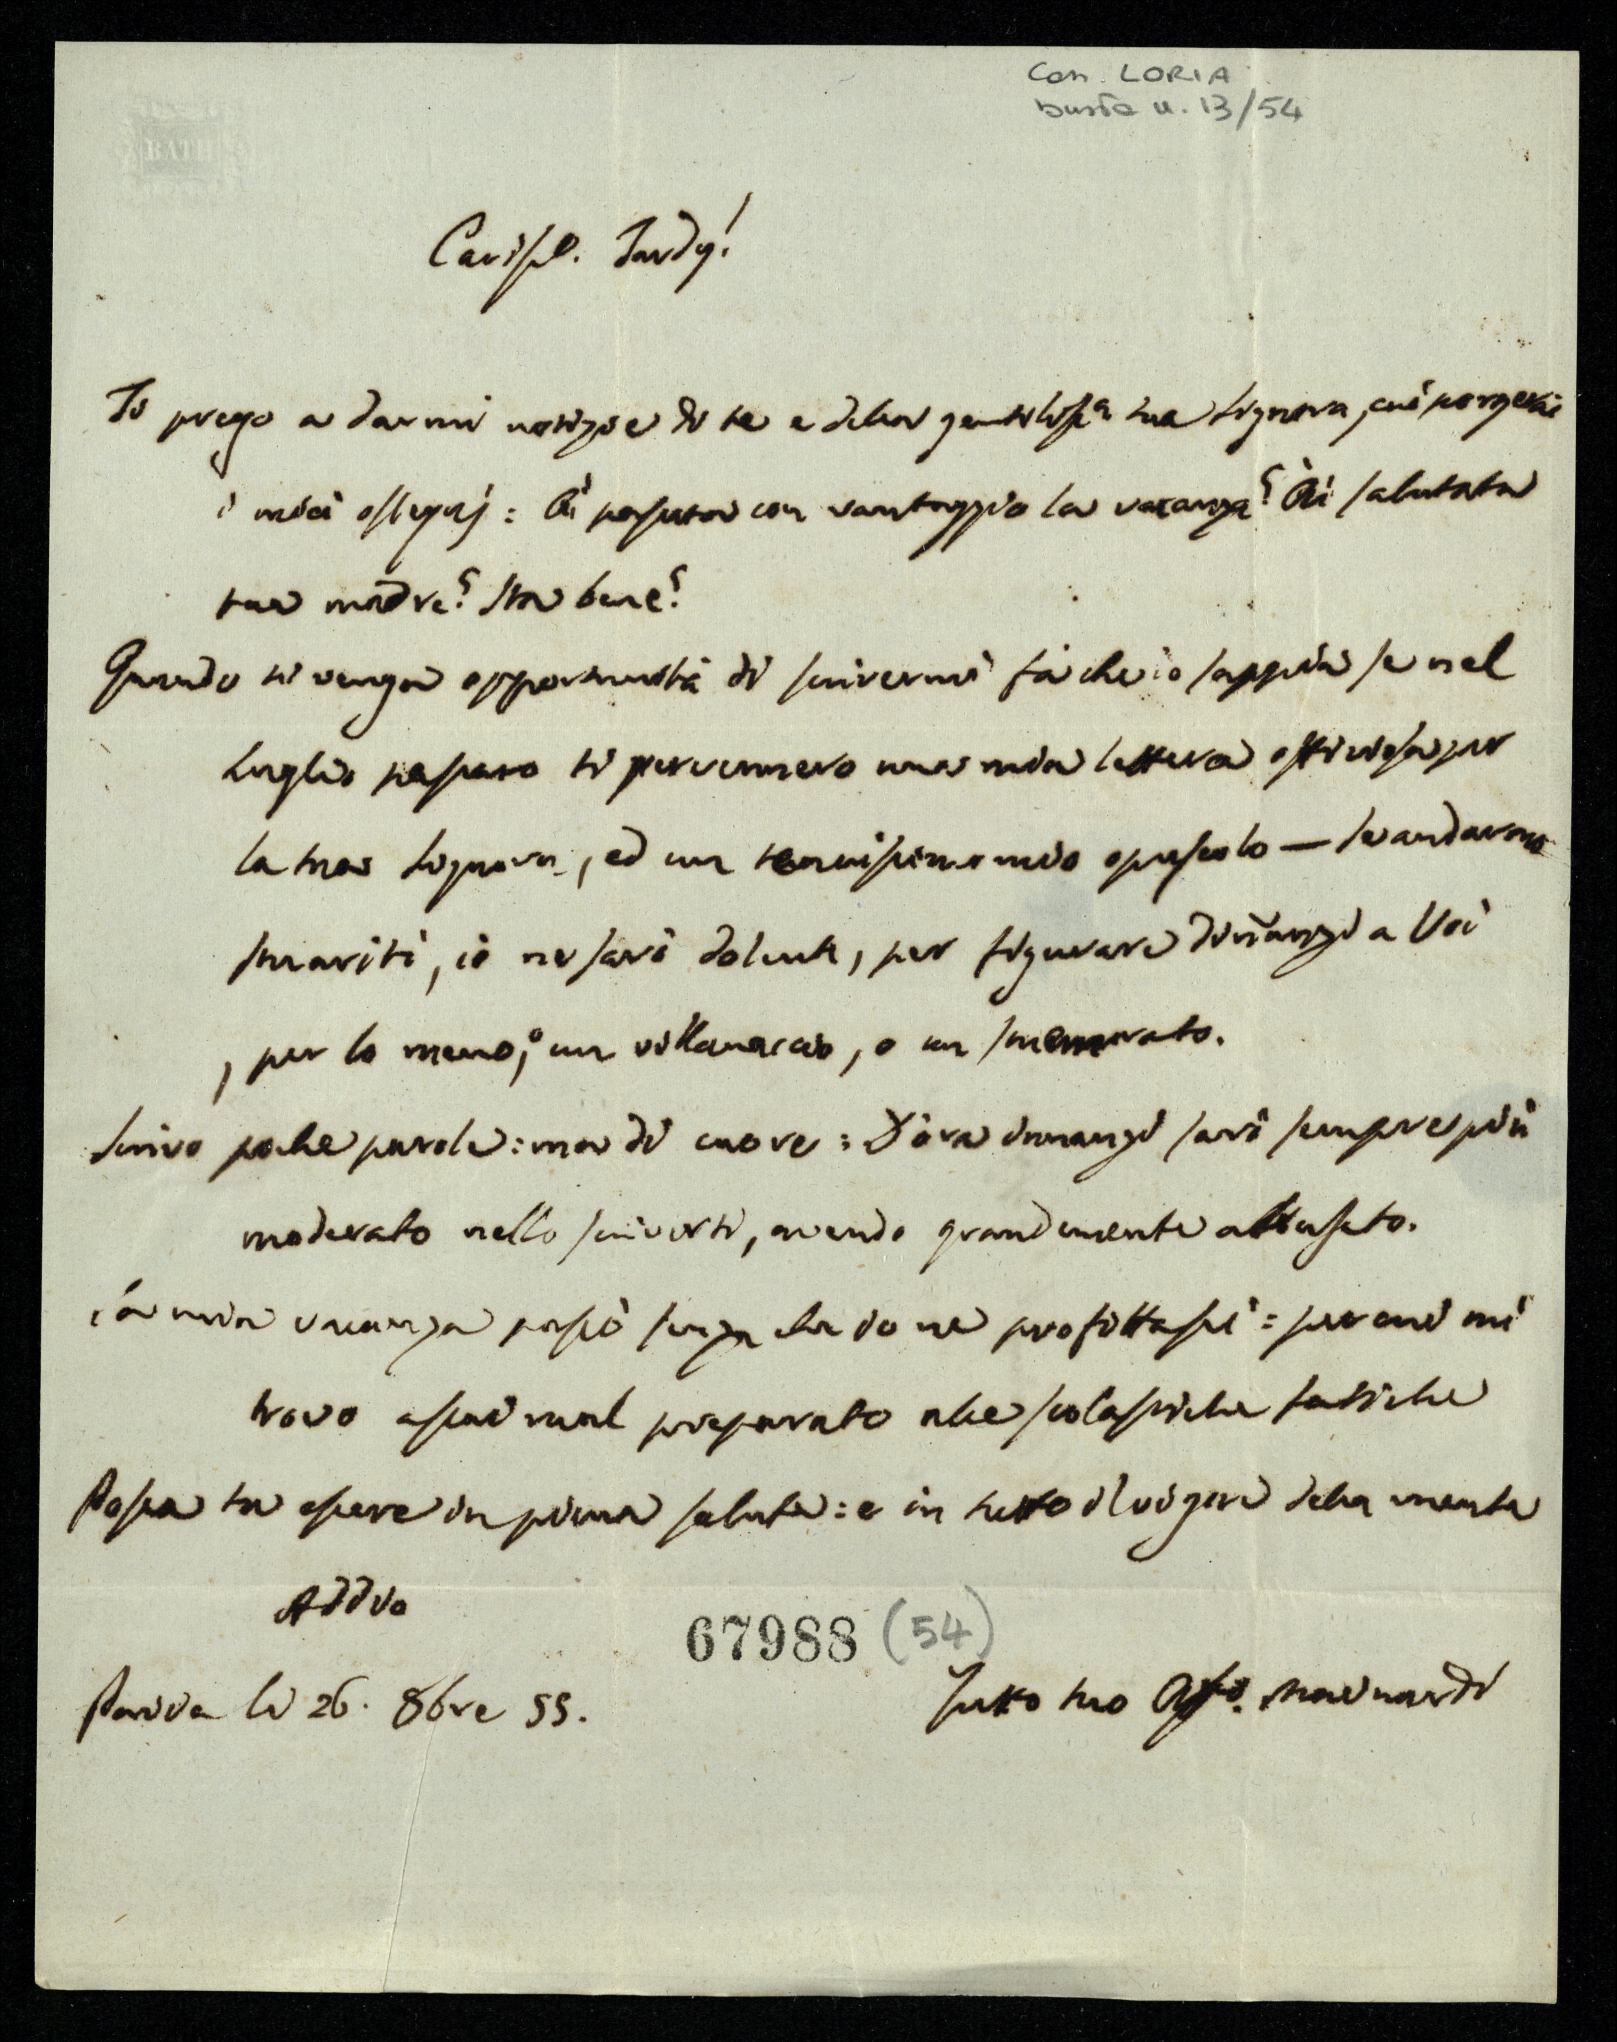 Con. LORIA
busta n. 13/54
BATH
Cariss.o Tardy!
Ti prego a darmi notizie di te e della gentiliss.a tua Signora, cui porgerai
i miei ossequj: Ài passata con vantaggio la vacanza? Ài salutata
tua madre? Sta bene?
Quando ti venga opportunità di scrivermi fa che io sappia se nel
Luglio passato ti pervennero una mia lettera officiosa per
la tua Signora, ed un tenuissimo mio opuscolo — se andarono
smariti, io ne sarò dolente, per figurare dinanzi a Voi
, per lo meno, o un villanaccio, o un smemorato.
Scrivo poche parole: ma di cuore: D'ora innanzi sarò sempre più
moderato nello scriverti, avendo grandemente abusato.
La mia vacanza passò senza che io ne profittassi: per cui mi
trovo assai mal preparato alle scolastiche fatiche
Possa tu essere in piena salute: e in tutto il vigore della mente
Addio
67988 (54)
Pavia li 26. 8bre 55.
Tutto tuo Aff.o Mainardi